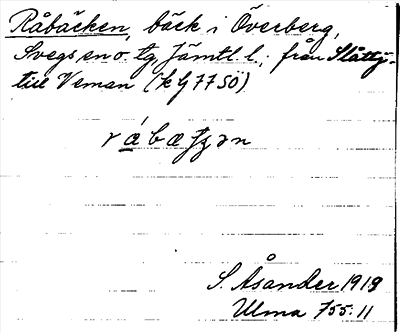 Råbäcken, bäck i Överberg,
Svegs sn o. tg, Jämtl. l.; från Slåttj-
till Veman (kg 77 SÖ)
S. Åsander 1918
Ulma 755:11